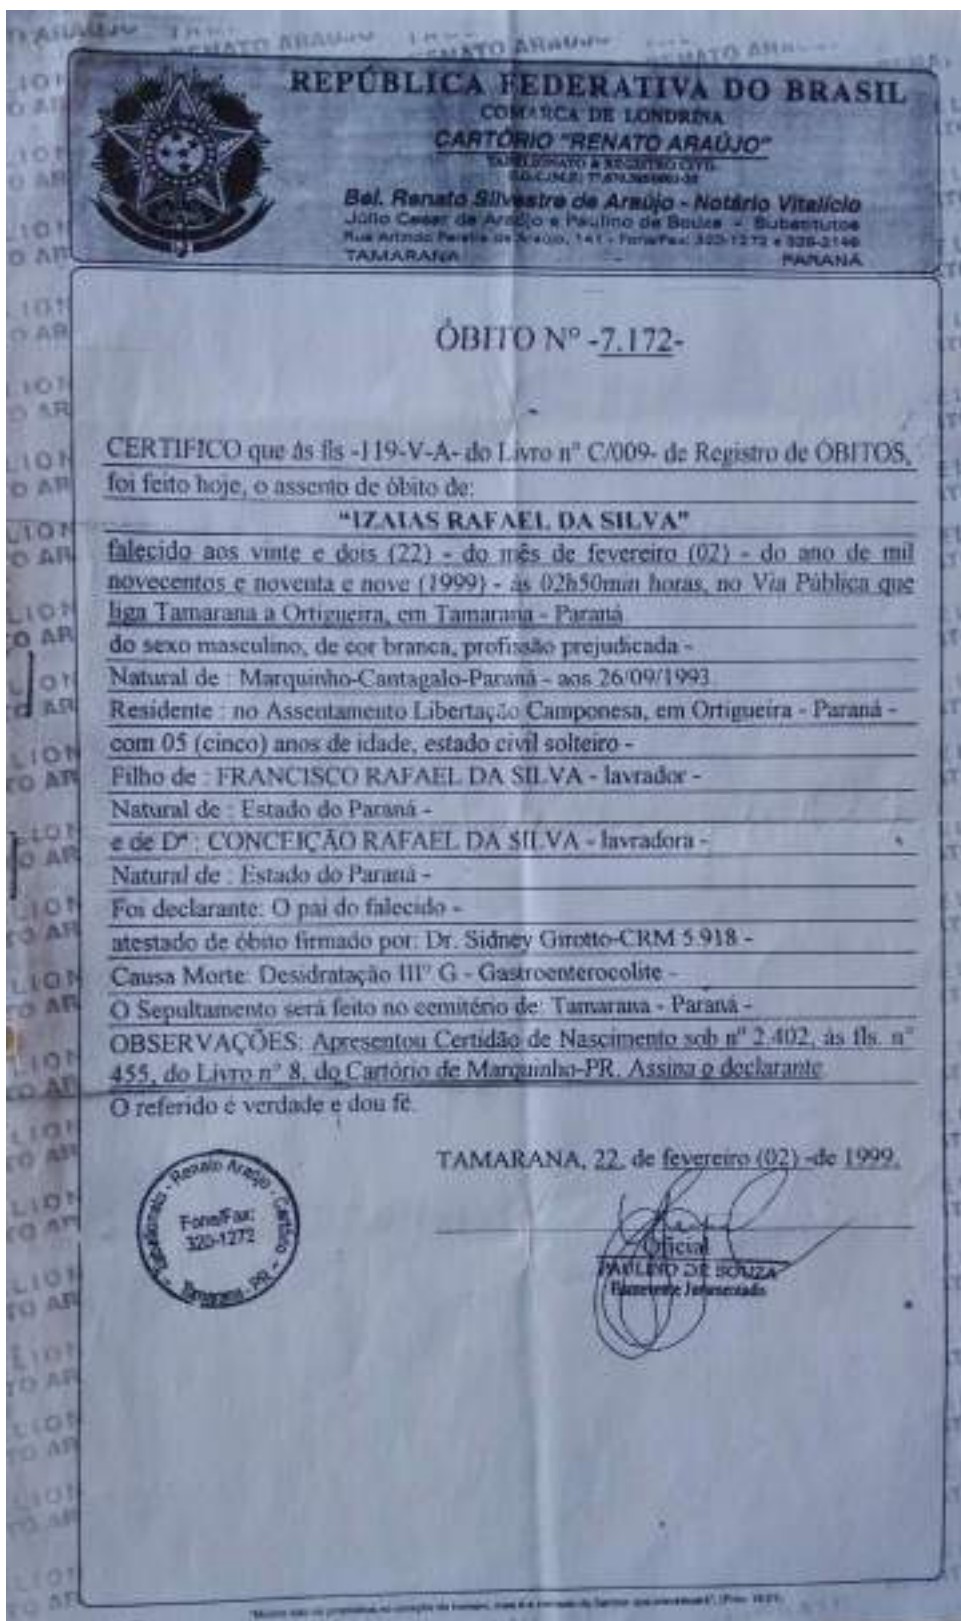 REPÚBLICA FEDERATIVA DO BRASIL
COMARCA DE LONDRINA
CARTÓRIO "RENATO ARAÚJO"
TABELIONATO & REGISTRO CIVIL
Bel. Renato Silvestre de Araújo - Notário Vitalício
Júlio Cesar de Araújo e Paulino de Souza - Substitutos
Rua Arlindo Pereira de Araújo, 141 - Fone/Fax: 320-1272 e
TAMARANA - PARANÁ
ÓBITO Nº -7.172-
CERTIFICO que às fls -119-V-A- do Livro nº C/009- de Registro de ÓBITOS,
foi feito hoje, o assento de óbito de:
"IZAIAS RAFAEL DA SILVA"
falecido aos vinte e dois (22) - do mês de fevereiro (02) - do ano de mil
novecentos e noventa e nove (1999) - às 02h50min horas, no Via Pública que
liga Tamarana a Ortigueira, em Tamarana - Paraná
do sexo masculino, de cor branca, profissão prejudicada -
Natural de : Marquinho-Cantagalo-Paraná - aos 26/09/1993
Residente : no Assentamento Libertação Camponesa, em Ortigueira - Paraná -
com 05 (cinco) anos de idade, estado civil solteiro -
Filho de : FRANCISCO RAFAEL DA SILVA - lavrador -
Natural de : Estado do Paraná -
e de Dª : CONCEIÇÃO RAFAEL DA SILVA - lavradora -
Natural de : Estado do Paraná -
Foi declarante: O pai do falecido -
atestado de óbito firmado por: Dr. Sidney Girotto-CRM 5.918 -
Causa Morte: Desidratação IIIº G - Gastroenterocolite -
O Sepultamento será feito no cemitério de: Tamarana - Paraná -
OBSERVAÇÕES: Apresentou Certidão de Nascimento sob nº 2.402, às fls. nº
455, do Livro nº 8, do Cartório de Marquinho-PR. Assina o declarante
O referido é verdade e dou fé.
TAMARANA, 22, de fevereiro (02) -de 1999.
Tabelionato - Renato Araújo - Cartório
Fone/Fax:
320-1272
Tamarana - PR
Oficial
PAULINO DE SOUZA
Escrevente Juramentado